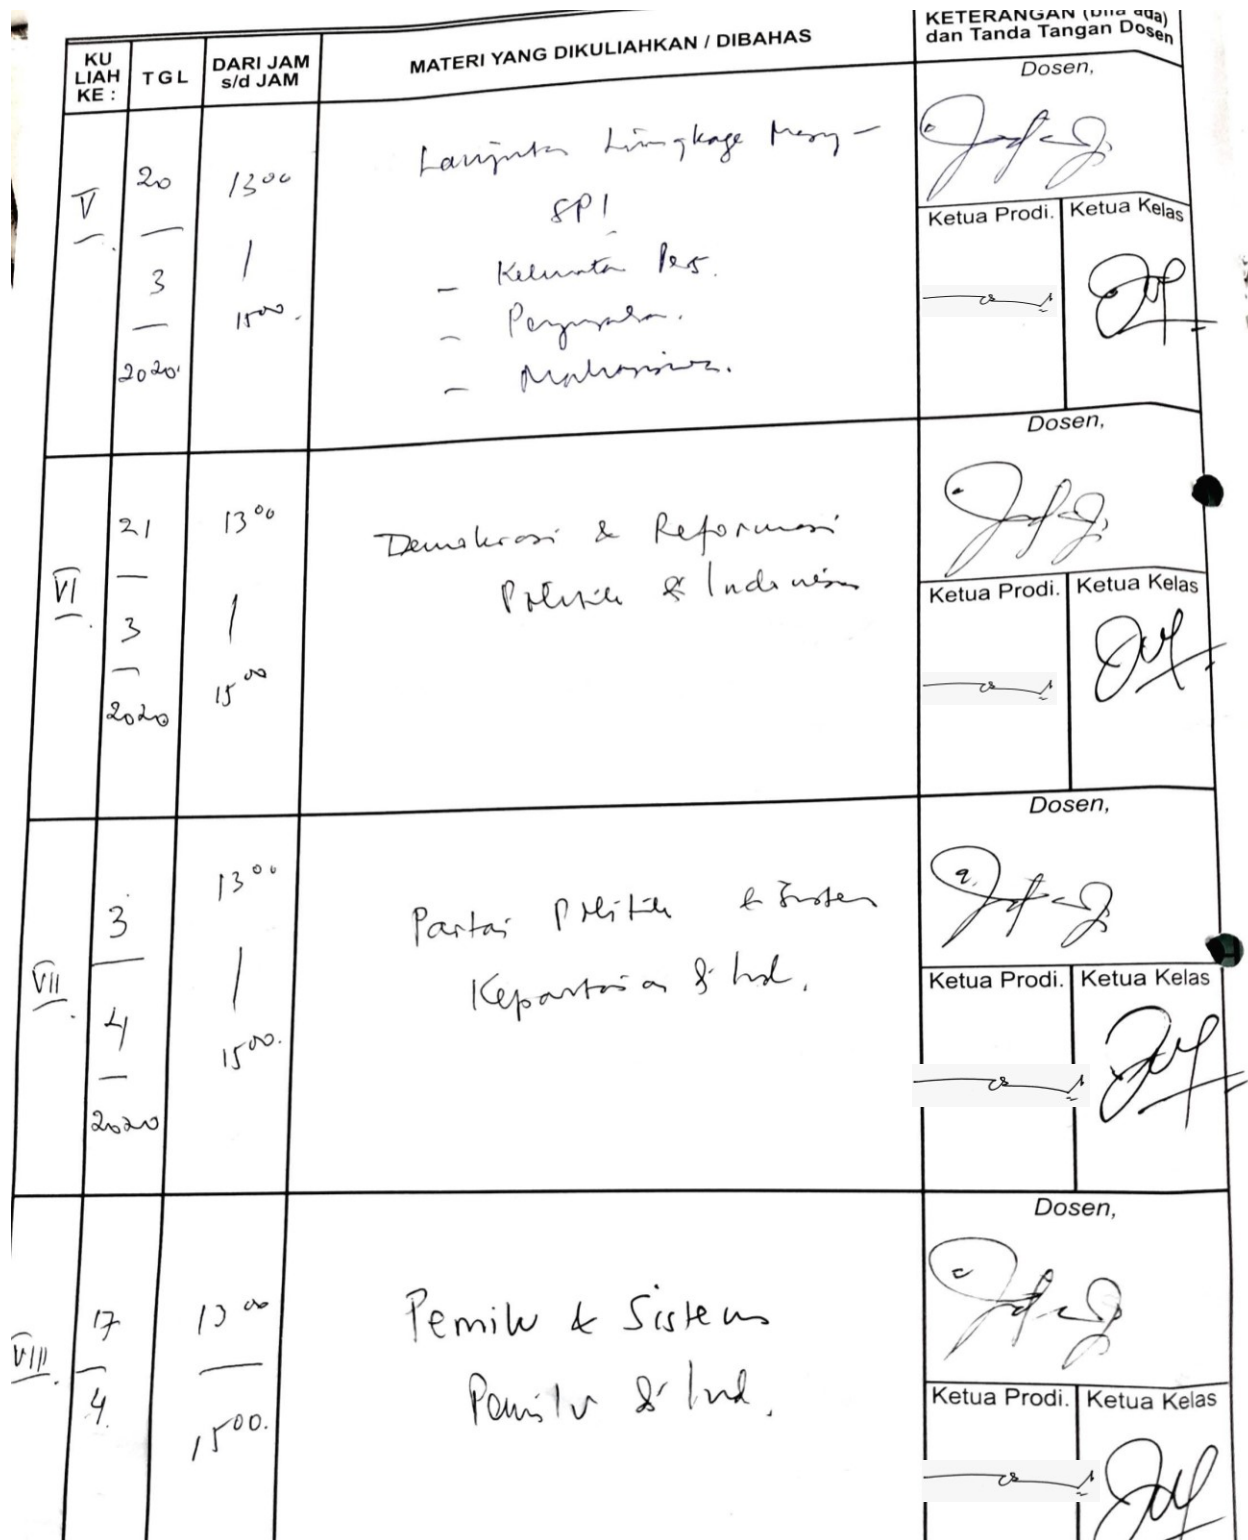 KU LIAH KE :
TGL
DARI JAM s/d JAM
MATERI YANG DIKULIAHKAN / DIBAHAS
KETERANGAN (bila ada)
dan Tanda Tangan Dosen
V
20
3
2020
13⁰⁰
15⁰⁰
SPI
Dosen,
Ketua Prodi.
Ketua Kelas
VI
21
3
2020
13⁰⁰
15⁰⁰
Demokrasi & Reformasi
Politik & Indonesia
Dosen,
Ketua Prodi.
Ketua Kelas
VII
3
4
2020
13⁰⁰
15⁰⁰
Partai Politik & Sistem
Kepartaian di Ind.
Dosen,
Ketua Prodi.
Ketua Kelas
VIII
17
4
13⁰⁰
15⁰⁰
Pemilu & Sistem
Pemilu di Ind.
Dosen,
Ketua Prodi.
Ketua Kelas